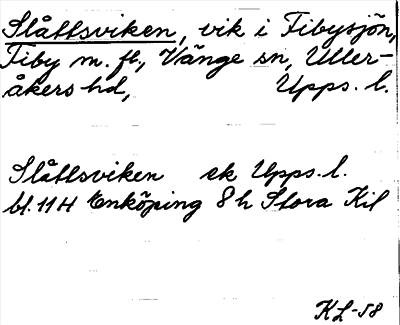 Slåttsviken, vik i Fibysjön,
Fiby m. fl., Vänge sn, Uller-
åkers hd, Upps. l.
Slåttsviken ek Upps. l.
bl. 11 H Enköping 8 h Stora Kil
KL-58